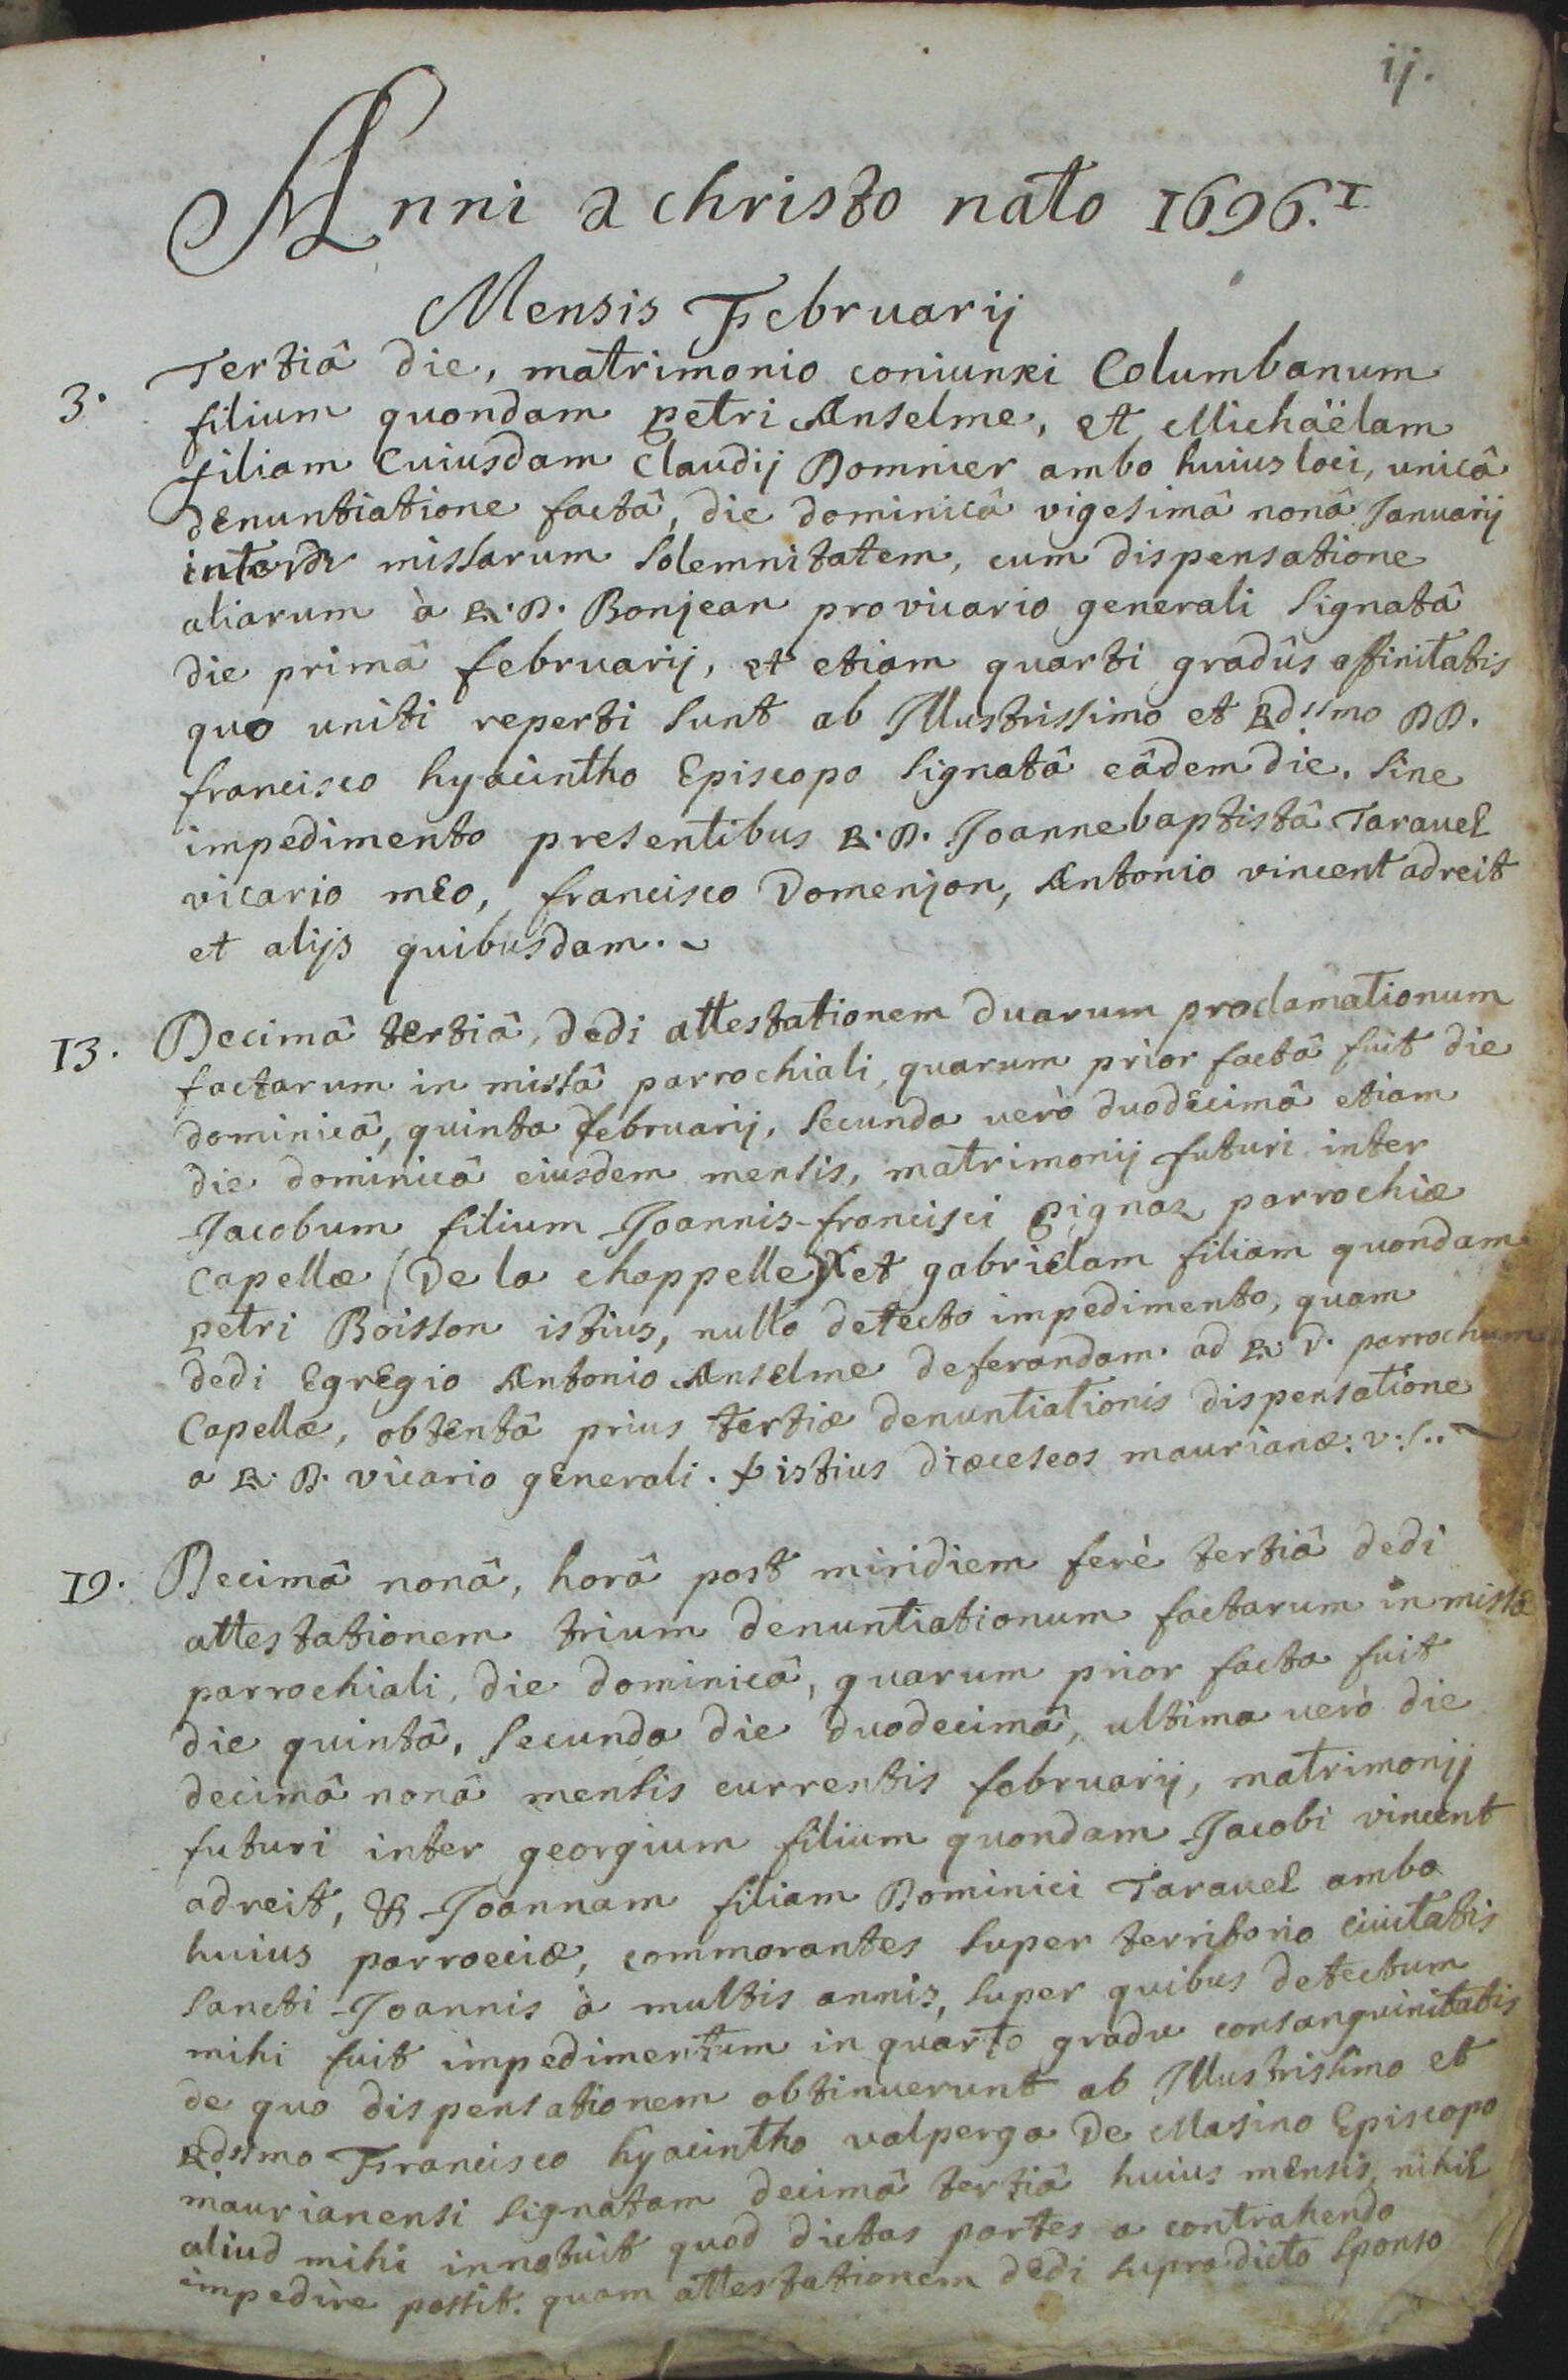 ij.
Anni a christo nato 1696.1
Mensis Februarij
3. Tertiâ die, matrimonio coniunxi Columbanum
filium quondam petri Anselme, et Michaëlam
filiam Cuiusdam Claudij Domnier ambo huius loci, unicâ
denuntiatione factâ, die dominicâ vigesimâ nonâ Januarij
missarum solemnitatem, cum dispensatione
aliarum à R. D. Bonjean provicario generali signatâ
die primâ februarij, et etiam quarti gradûs affinitatis
quo uniti reperti sunt ab Illustrissimo et Rdssmo DD.
francisco hyacintho Episcopo signatâ eâdem die. sine
impedimento presentibus R. D. Joannebaptistâ Taravel
vicario meo, francisco Domenjon, Antonio vincent adreit
et alijs quibusdam. ~
13. Decimâ tertiâ, dedi attestationem duarum proclamationum
factarum in missâ parrochiali, quarum prior factâ fuit die
dominicâ, quinta februarij, secunda verò duodecimâ etiam
die dominicâ eiusdem mensis, matrimonij futuri inter
Jacobum filium Joannis-francisci pignaz parrochiæ
Capellæ (De la chappelle) et gabrielam filiam quondam
petri Boisson istius, nullo detecto impedimento, quam
dedi Egregio Antonio Anselme deferandam ad R. D. parrochum
Capellæ, obtentâ prius tertiæ denuntiationis dispensatione
a R. D. vicario generali. istius diœceseos maurianæ: v:s..~
19. Decimâ nonâ, horâ post miridiem ferè tertiâ dedi
attestationem trium denuntiationum factarum in missâ
parrochiali, die dominicâ, quarum prior facta fuit
die quintâ, secunda die duodecimâ, ultima verò die
decimâ nonâ mensis currentis februarij, matrimonij
futuri inter georgium filium quondam Jacobi vincent
adreit, & Joannam filiam Dominici Taravel ambo
huius parrocciæ, commorantes super territorio civitatis
sancti Joannis à multis annis, super quibus detectum
mihi fuit impedimentum in quarto gradu consanguinitatis
de quo dispensationem obtinuerunt ab Illustrissimo et
Rdssmo Francisco hyacintho valperga De Masino Episcopo
maurianensi signatam decimâ tertiâ huius mensis, nihil
aliud mihi innotuit quod dictas partes a contrahendo
impedire possit. quam attestationem dedi supradicto sponso